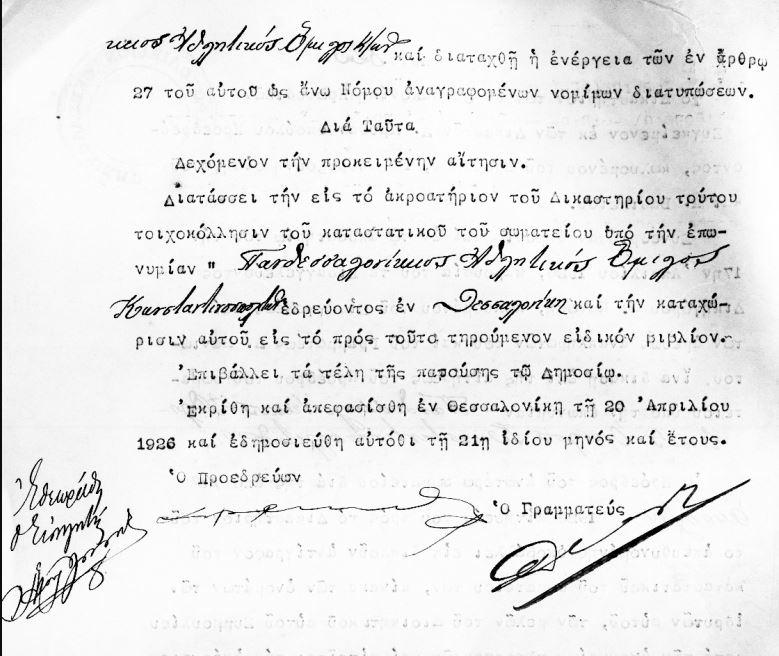 νικιος Ἀθλητικός Ὅμιλος Κων καί διαταχθῇ ἡ ἐνέργεια τῶν ἐν ἄρθρῳ
27 τοῦ αὐτοῦ ὡς ἄνω Νόμου ἀναγραφομένων νομίμων διατυπώσεων.
Διά Ταῦτα
Δεχόμενον τήν προκειμένην αἴτησιν.
Διατάσσει τήν εἰς τό ἀκροατήριον τοῦ Δικαστηρίου τούτου
τοιχοκόλλησιν τοῦ καταστατικοῦ τοῦ σωματείου ὑπό τήν ἐπω-
νυμίαν " Πανθεσσαλονίκιος Ἀθλητικός Ὅμιλος
Κωνσταντινουπολιτῶν ἑδρεύοντος ἐν Θεσσαλονίκῃ καί τήν καταχώ-
ρισιν αὐτοῦ εἰς τό πρός τοῦτο τηρούμενον εἰδικόν βιβλίον.
Ἐπιβάλλει τά τέλη τῆς παρούσης τῷ Δημοσίῳ.
Ἐκρίθη καί ἀπεφασίσθη ἐν Θεσσαλονίκῃ τῇ 20 Ἀπριλίου
1926 καί ἐδημοσιεύθη αὐτόθι τῇ 21ῃ ἰδίου μηνός καί ἔτους.
Ὁ Προεδρεύων
Ὁ Γραμματεύς
Ἐθεωρήθη
ὁ Εἰσηγητής